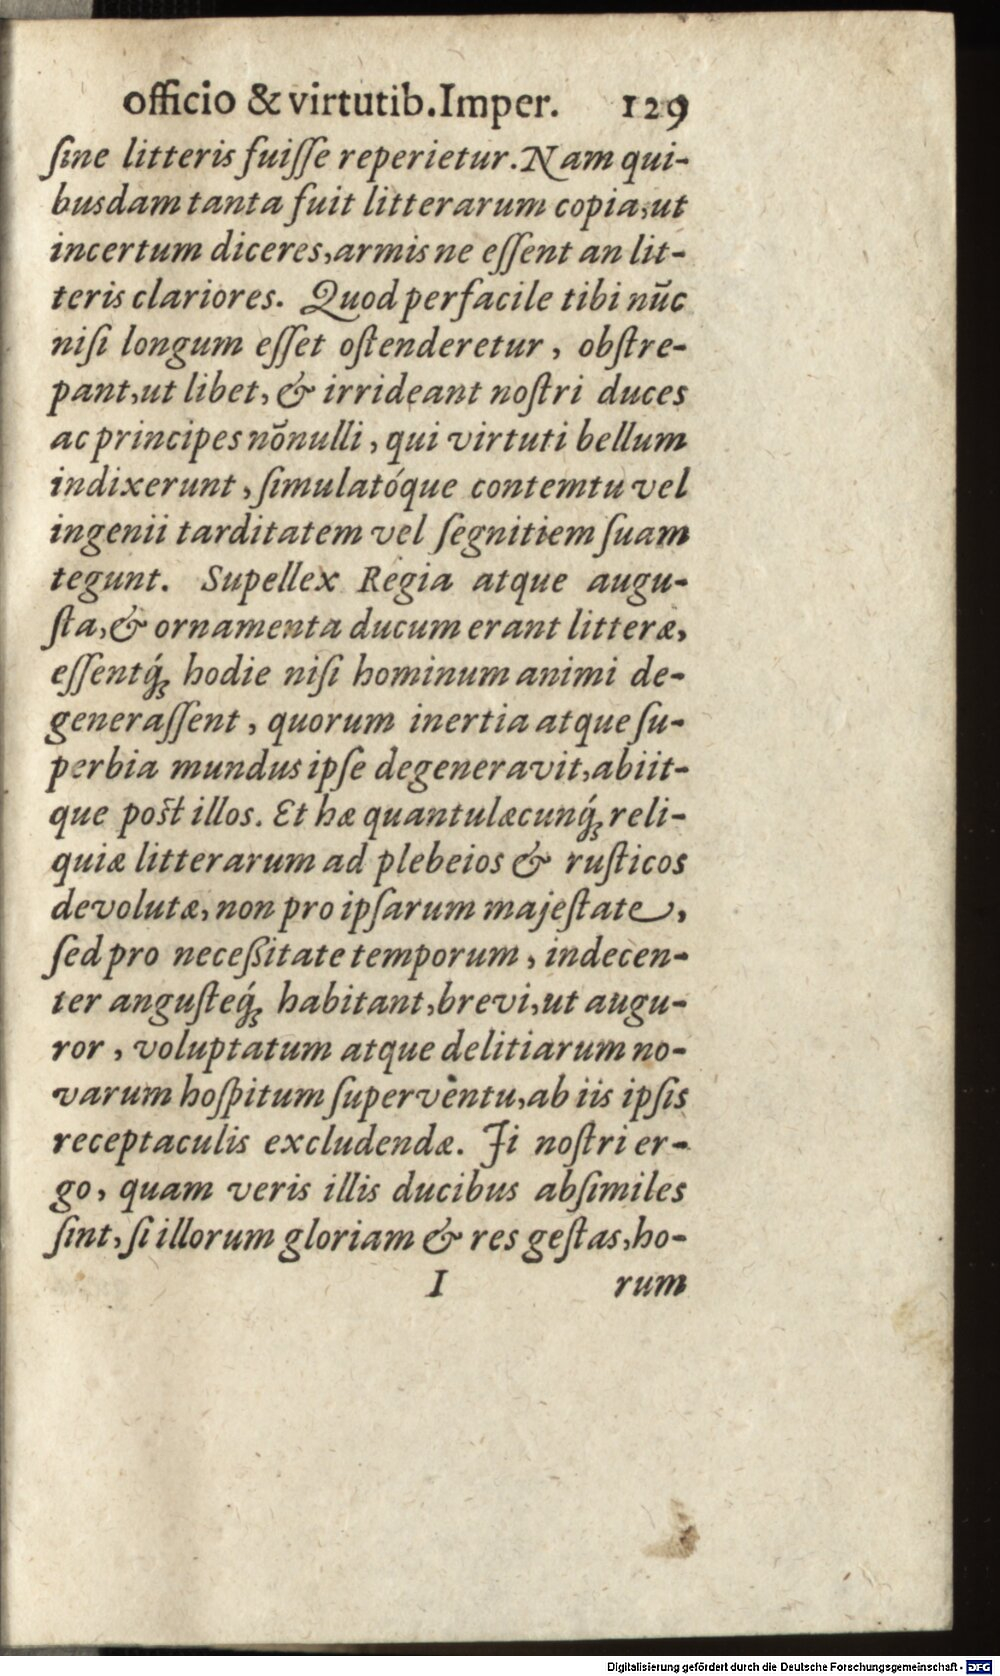 officio & virtutib. Imper. 129
ſine litteris fuiſſe reperietur. Nam qui-
busdam tanta fuit litterarum copia, ut
incertum diceres, armis ne eſſent an lit-
teris clariores. Quod perfacile tibi nūc
niſi longum eſſet oſtenderetur, obſtre-
pant, ut libet, & irrideant noſtri duces
ac principes nōnulli, qui virtuti bellum
indixerunt, ſimulatóque contemtu vel
ingenii tarditatem vel ſegnitiem ſuam
tegunt. Supellex Regia atque augu-
ſta, & ornamenta ducum erant litteræ,
eſſentq́ꝫ hodie niſi hominum animi de-
generaſſent, quorum inertia atque ſu-
perbia mundus ipſe degeneravit, abiit-
que poſt illos. Et hæ quantulæcunq́ꝫ reli-
quiæ litterarum ad plebeios & ruſticos
devolutæ, non pro ipſarum majeſtate,
ſed pro neceßitate temporum, indecen-
ter anguſteq́ꝫ habitant, brevi, ut augu-
ror, voluptatum atque delitiarum no-
varum hoſpitum ſuperventu, ab iis ipſis
receptaculis excludendæ. Ii noſtri er-
go, quam veris illis ducibus abſimiles
ſint, ſi illorum gloriam & res geſtas, ho-
I rum
Digitalisierung gefördert durch die Deutsche Forschungsgemeinschaft - DFG